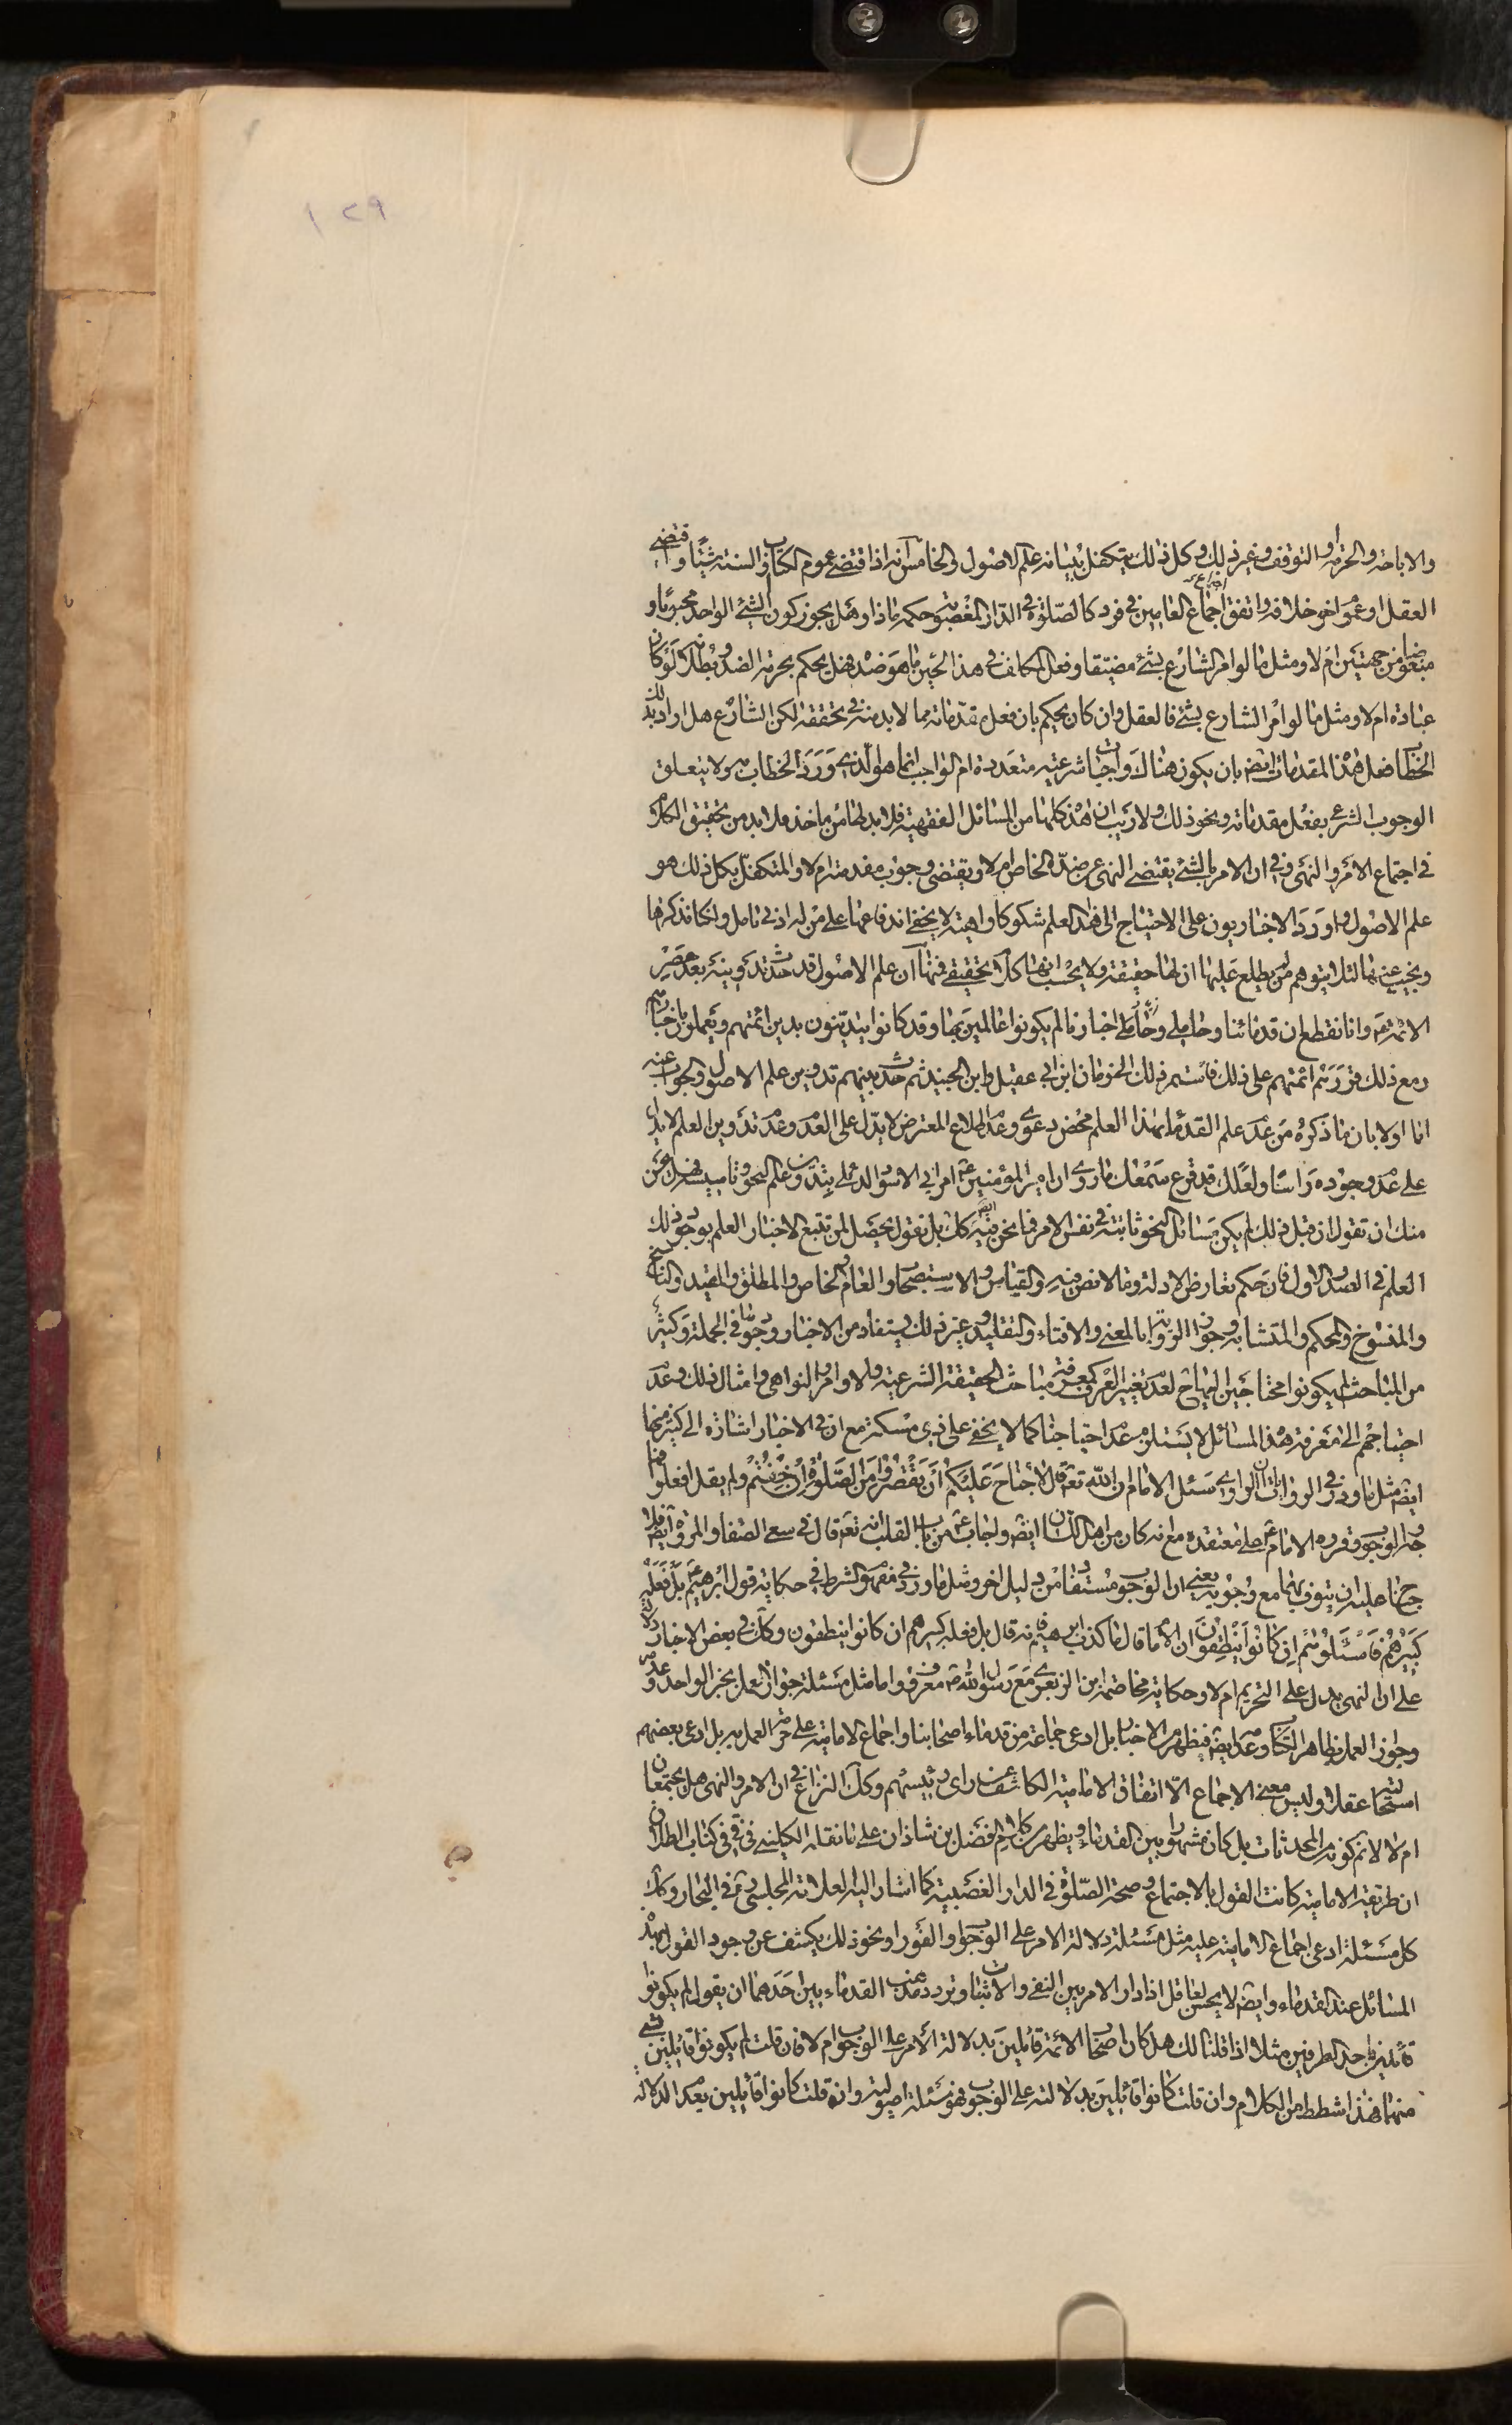 ١٢٩
والاباحة والحرمة او التوقف وغير ذلك وكل ذلك يتكفل ببيانه علم الاصول والخامس انه اذا اقتضى عموم الكتاب والسنة شيئا واقتضى
العقل او عموم اخر خلافه واتفق اجتماع العامين في فرد كالصلوة في الدار المغصوبة حكمه ماذا وهل يجوز كون الشيء الواحد محبوبا و
مبغوضا من جهتين ام لا ومثل ما لو امر الشارع بشيء مضيقا وفعل المكلف في هذا الحين ما هو ضده فهل يحكم بحرمة الضد وبطلانه لو كان
عبادة ام لا ومثل ما لو امر الشارع بشيء فالعقل وان كان يحكم بان فعل مقدماته مما لا بد منه في تحققه لكن الشارع هل اراد بذلك
الخطاب فعل هذه المقدمات ايضا بان يكون هناك واجبات شرعية متعددة ام الواجب انما هو الذي ورد الخطاب به ولا يتعلق
الوجوب الشرعي بفعل مقدماته ونحو ذلك ولا ريب ان هذه كلها من المسائل الفقهية فلا بد لها من ماخذ فلا بد من تحقيق الكلام
في اجتماع الامر والنهي وفي ان الامر بالشيء يقتضي النهي عن ضده الخاص ام لا ويقتضي وجوب مقدمته ام لا والمتكفل بكل ذلك هو
علم الاصول واورد الاخباريون على الاحتياج الى هذا العلم شكوكا واهية لا يخفى اندفاعها على من له ادنى تامل ولكنا نذكرها
ونجيب عنها لئلا يتوهم من يطلع عليها ان لها حقيقة ولا يحسب انها كلام تحقيقي فمنها ان علم الاصول قد حدث تدوينه بعد عصر
الائمة ع وانا نقطع ان قدمائنا وحاملي اخبارنا لم يكونوا عالمين بها وقد كانوا يتدينون بدين ائمتهم ويعملون باخبارهم
ومع ذلك قررتهم ائمتهم على ذلك فاستمر ذلك الى زمان ابن ابي عقيل وابن الجنيد ثم حدث بينهم تدوين علم الاصول والجواب عنه
اما اولا بان ما ذكروه من عدم علم القدماء بهذا العلم محض دعوى وعدم اطلاع المعترض لا يدل على العدم وعدم تدوين العلم لا يدل
على عدم وجوده راسا ولعلك قد قرع سمعك ما روي ان امير المؤمنين ع امر ابي الاسود الدئلي بتدوين علم النحو وتاسيسه فهل يحسن
منك ان تقول ان قبل ذلك لم يكن مسائل النحو ثابتة في نفس الامر فما نحن فيه كك بل نقول يحصل لمن تتبع الاخبار العلم بوجود ذلك
العلم في الصدر الاول فان حكم تعارض الادلة وما لا نص فيه والقياس والاستصحاب والعام والخاص والمطلق والمقيد والناسخ
والمنسوخ والمحكم والمتشابه وجواز الرواية بالمعنى والافتاء والتقليد وغير ذلك يستفاد من الاخبار وجوبا في الجملة وكثير
من المباحث لم يكونوا محتاجين اليها لعدم تغيير العرف كمعرفة مباحث الحقيقة الشرعية والاوامر والنواهي وامثال ذلك وعدم
احتياجهم الى معرفة هذه المسائل لا يستلزم عدم احتياجنا كما لا يخفى على ذي مسكة مع ان في الاخبار اشارة الى كثير منها
ايضا مثل ما ورد في الروايات ان الراوي سئل الامام ان الله تعم قال لا جناح عليكم ان تقصروا من الصلوة ان خفتم ولم يقل افعلوا فما
وجه الوجوب وقرره الامام ع على معتقده مع انه كان من اهل اللسان ايضا واجاب ع من باب القلب انه تعم قال في سعي الصفا والمروة ايضا فلا
جناح عليه ان يطوف بهما مع وجوبه يعني ان الوجوب مستفاد من دليل اخر ومثل ما ورد في مفهوم الشرط في حكاية قول ابرهيم ع بل فعله
كبيرهم فاسئلوهم ان كانوا ينطقون ان الامام قال ما كذب ابرهيم فانه قال بل فعله كبيرهم ان كانوا ينطقون وكك في بعض الاخبار دلالة
على ان النهي يدل على التحريم ام لا وحكاية مخاصمة ابن الزبعرى مع رسول الله ص معروف واما مثل مسئلة جواز العمل بخبر الواحد وعدمه
وجواز العمل بظاهر الكتاب وعدمه ايضا فيظهر من الاخبار بل ادعى جماعة من قدماء اصحابنا واجماع الامامية على حرمة العمل به بل ادعى بعضهم
استحالته عقلا وليس معنى الاجماع الا اتفاق الامامية الكاشف عن راي رئيسهم وكك النزاع في ان الامر والنهي هل يجتمعان
ام لا لا نم كونه من المحدثات بل كان مشهورا بين القدماء ويظهر من كلام الفضل بن شاذان على ما نقله الكليني في في كتاب الطلاق
ان طريقة الامامية كانت القول بالاجتماع وصحة الصلوة في الدار الغصبية كما اشار اليه العلامة المجلسي ره في البحار وكك
كل مسئلة ادعي اجماع الامامية عليه مثل مسئلة دلالة الامر على الوجوب او الفور او نحو ذلك يكشف عن وجود القول بهذه
المسائل عند القدماء وايضا لا يحسن لعاقل اذا دار الامر بين النفي والاثبات وتردد مذهب القدماء بين احدهما ان يقول لم يكونوا
قائلين باحد الطرفين مثلا اذا قلنا لك هل كان اصحاب الائمة قائلين بدلالة الامر على الوجوب ام لا فان قلت لم يكونوا قائلين بشيء
منهما فهذا شطط من الكلام وان قلت كانوا قائلين بدلالته على الوجوب فهو مسئلة اصولية وان قلت كانوا قائلين بعدم الدلالة